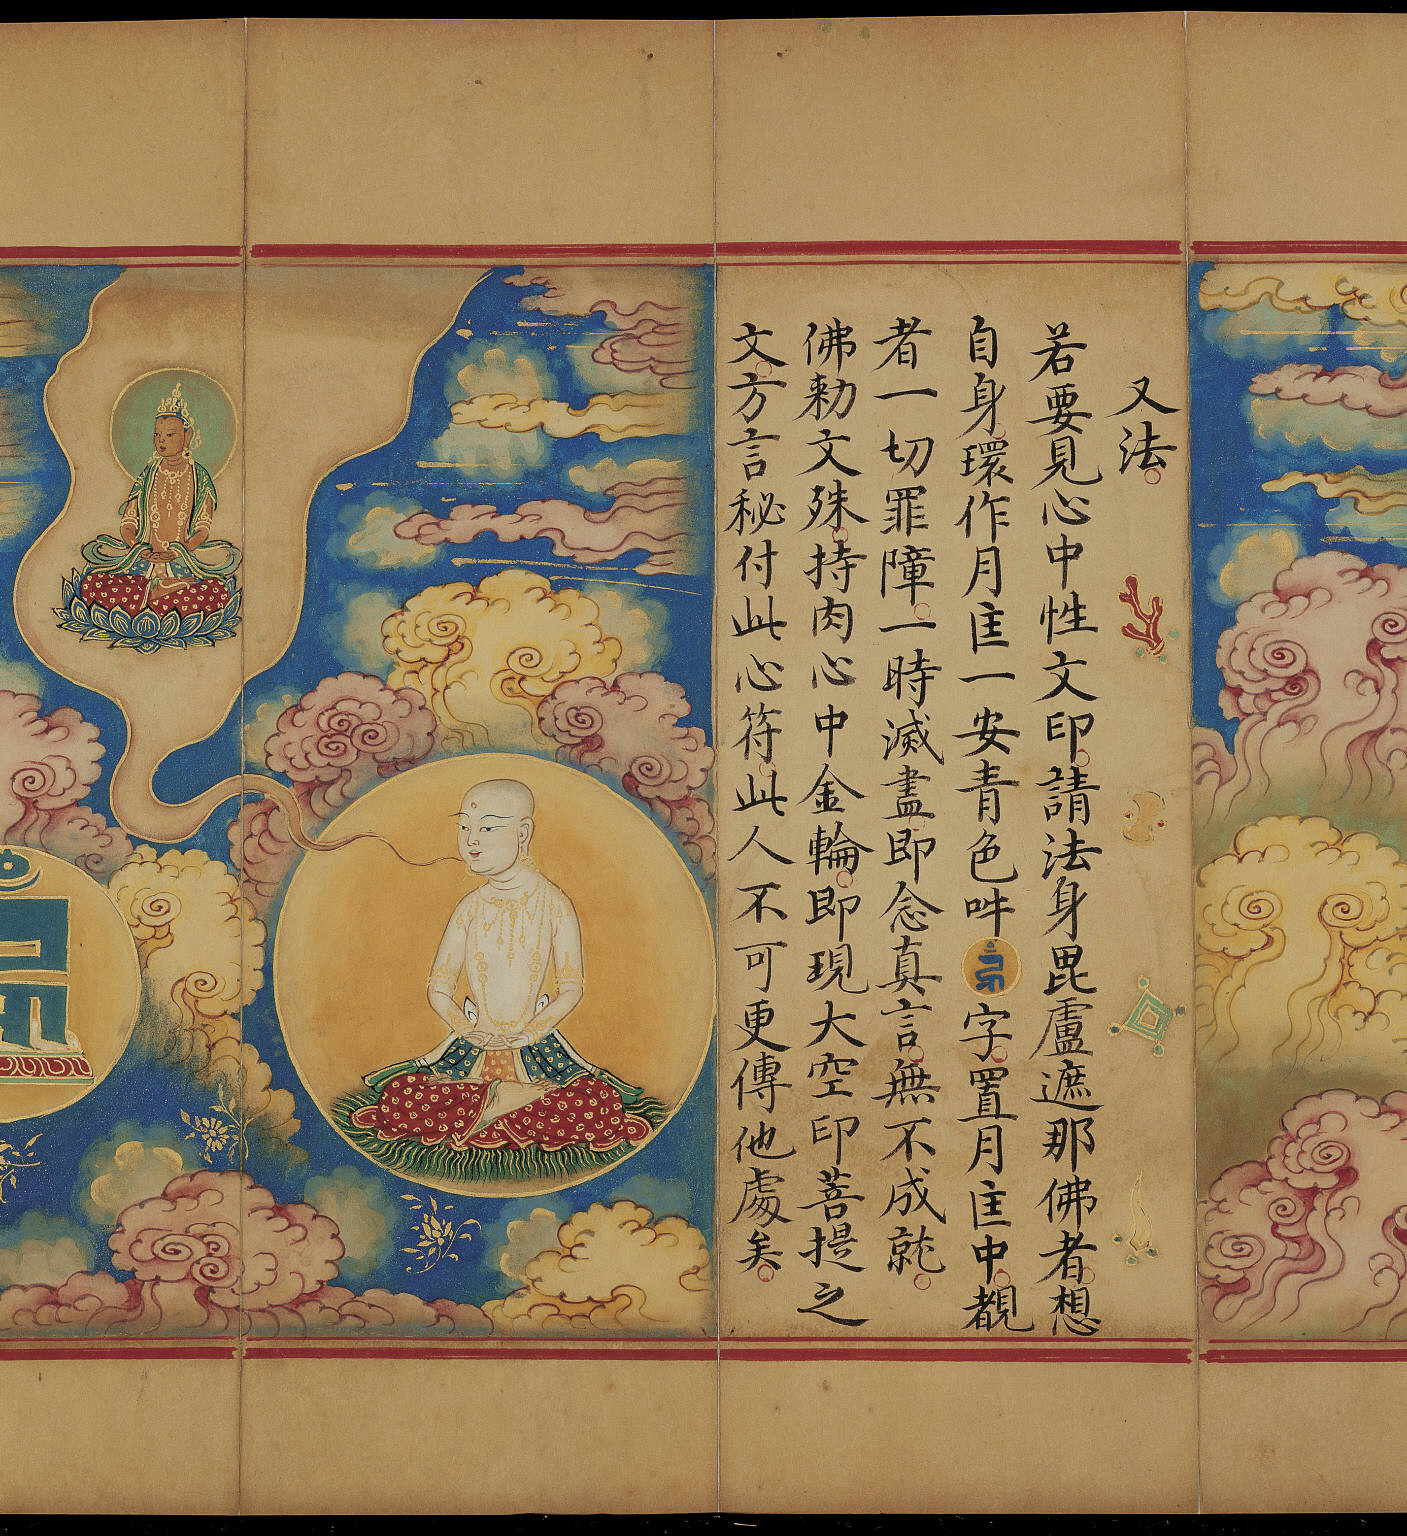 又法
若要見心中性文印請法身毘盧遮那佛者想
自身環作月𭅺一安青色吽字置月𭅺中覩
者一切罪障一時滅盡即念真言無不成就
佛勑文殊持肉心中金輪即現大空印菩提之
文方言秘付此心符此人不可更傳他處矣